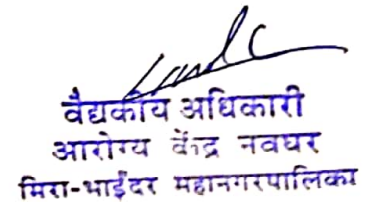 वैद्यकीय अधिकारी
आरोग्य केंद्र नवघर
मिरा-भाईंदर महानगरपालिका